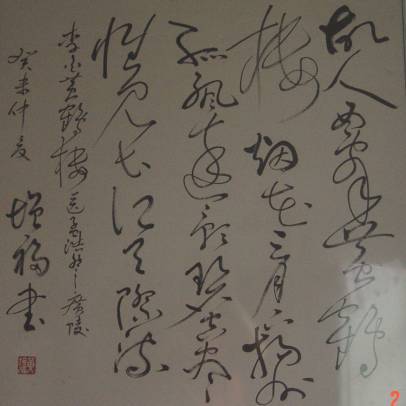 故人西辞黄鶴
楼烟花三月下揚州
孤帆遠影碧空尽
惟见长江天際流
李白黄鶴楼送孟浩然之广陵
癸未仲夏
增福书
2